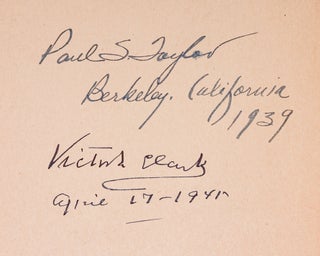 Paul S. Taylor
Berkeley, California
1939
Victor Clark
April 17-1941